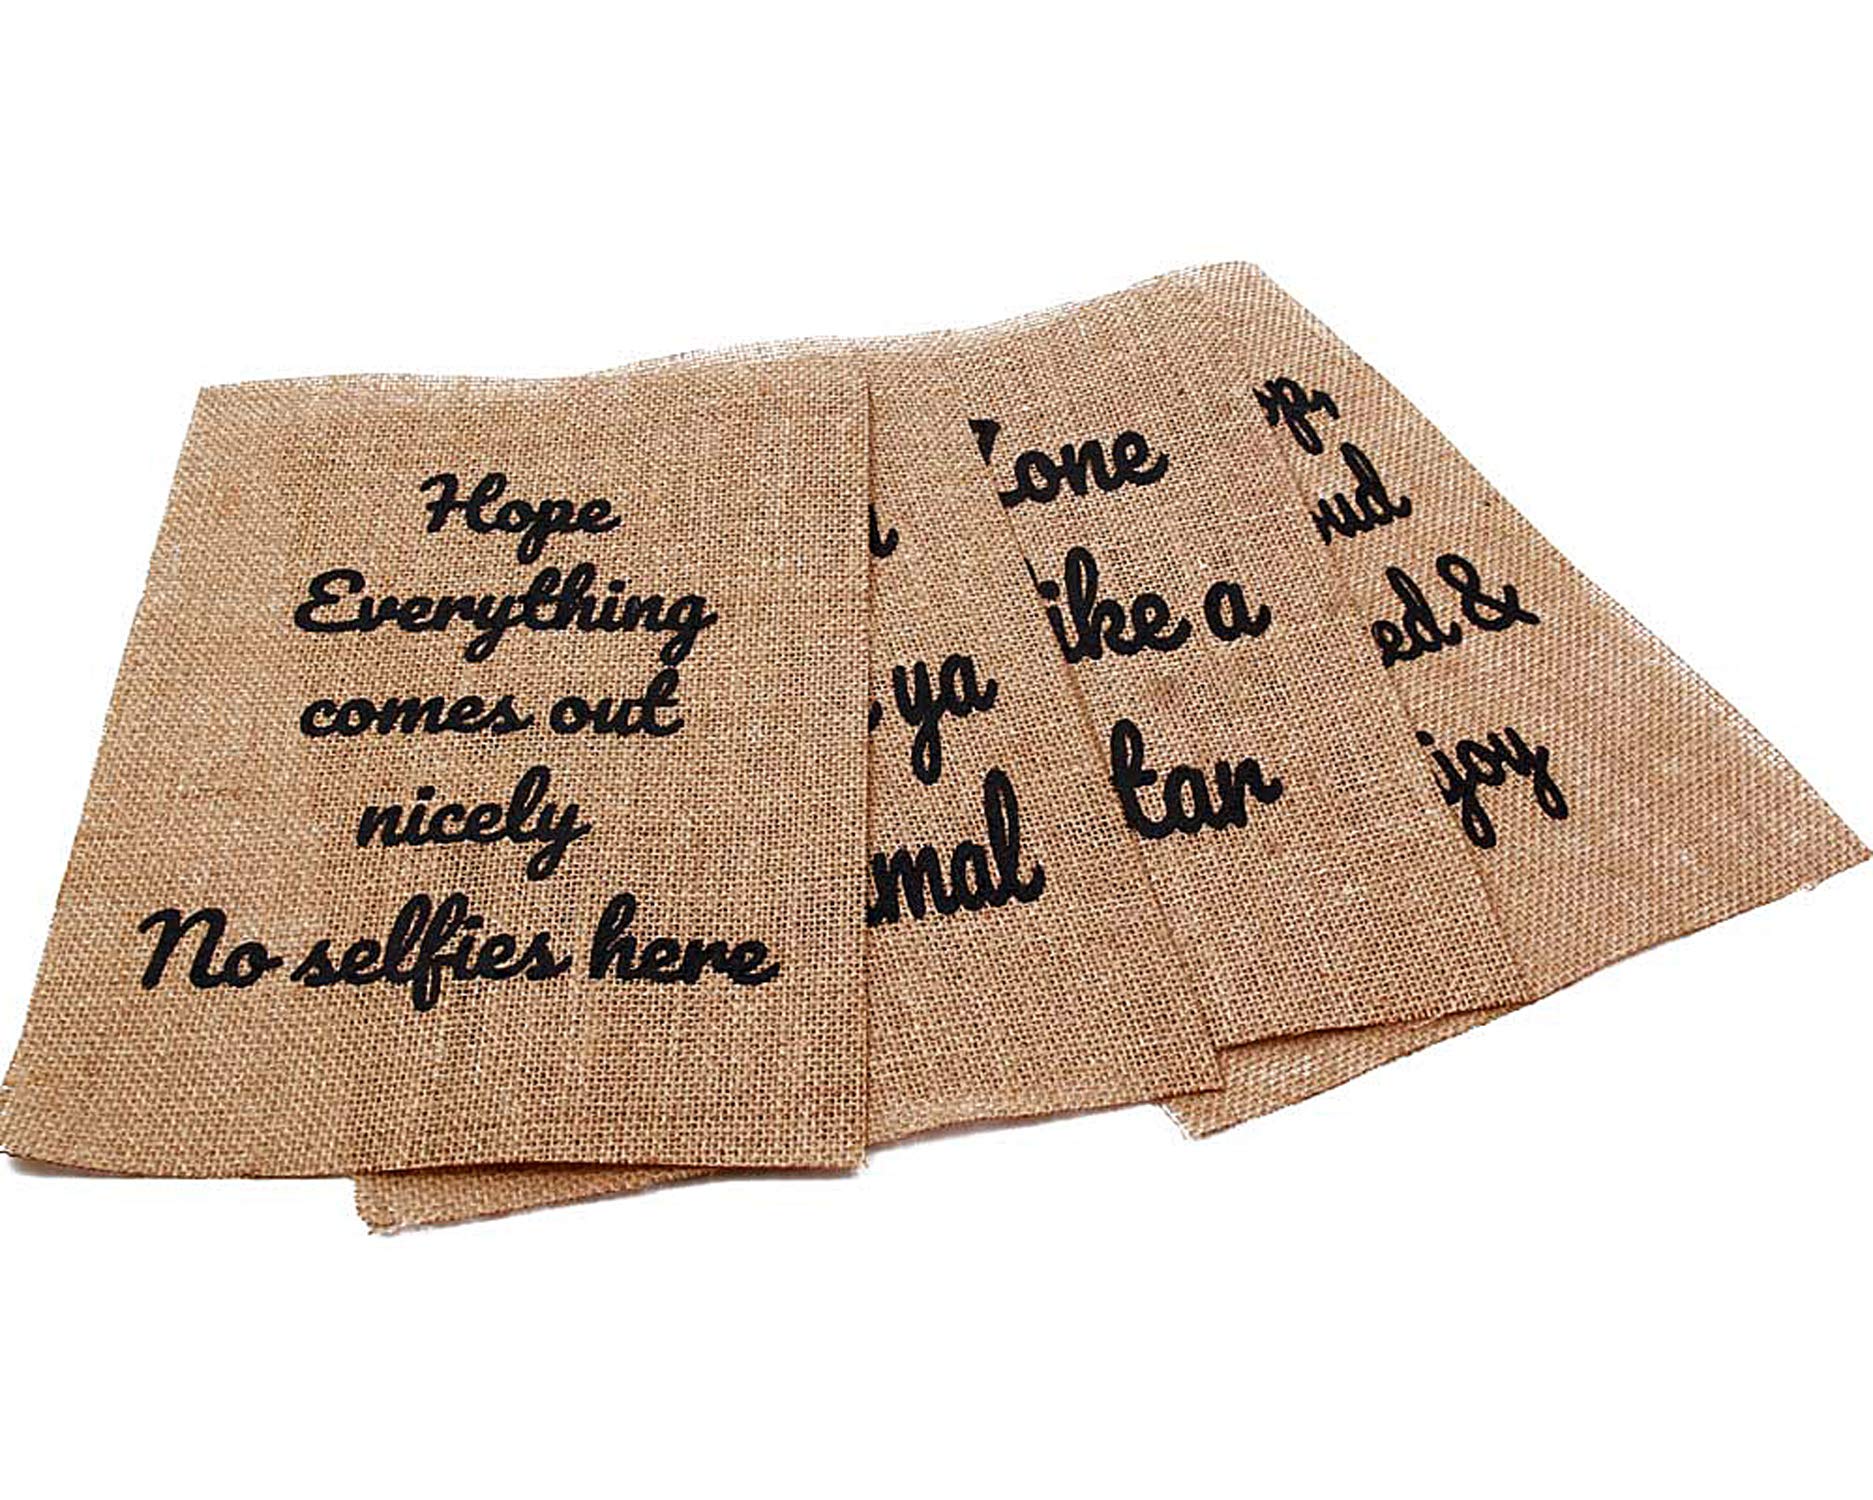 Hope
Everything
comes out
nicely
No selfies here
ya
one
ike a
tar
ud
ed &
joy